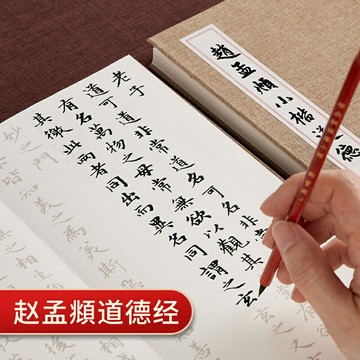 趙孟頫小楷道德
老子
道可道非常道名可名非常
有名萬物之母常無欲以觀其
其徼此兩者同出而異名同謂之玄
妙之門
皆知美之為美斯
之相生
赵孟頫道德经